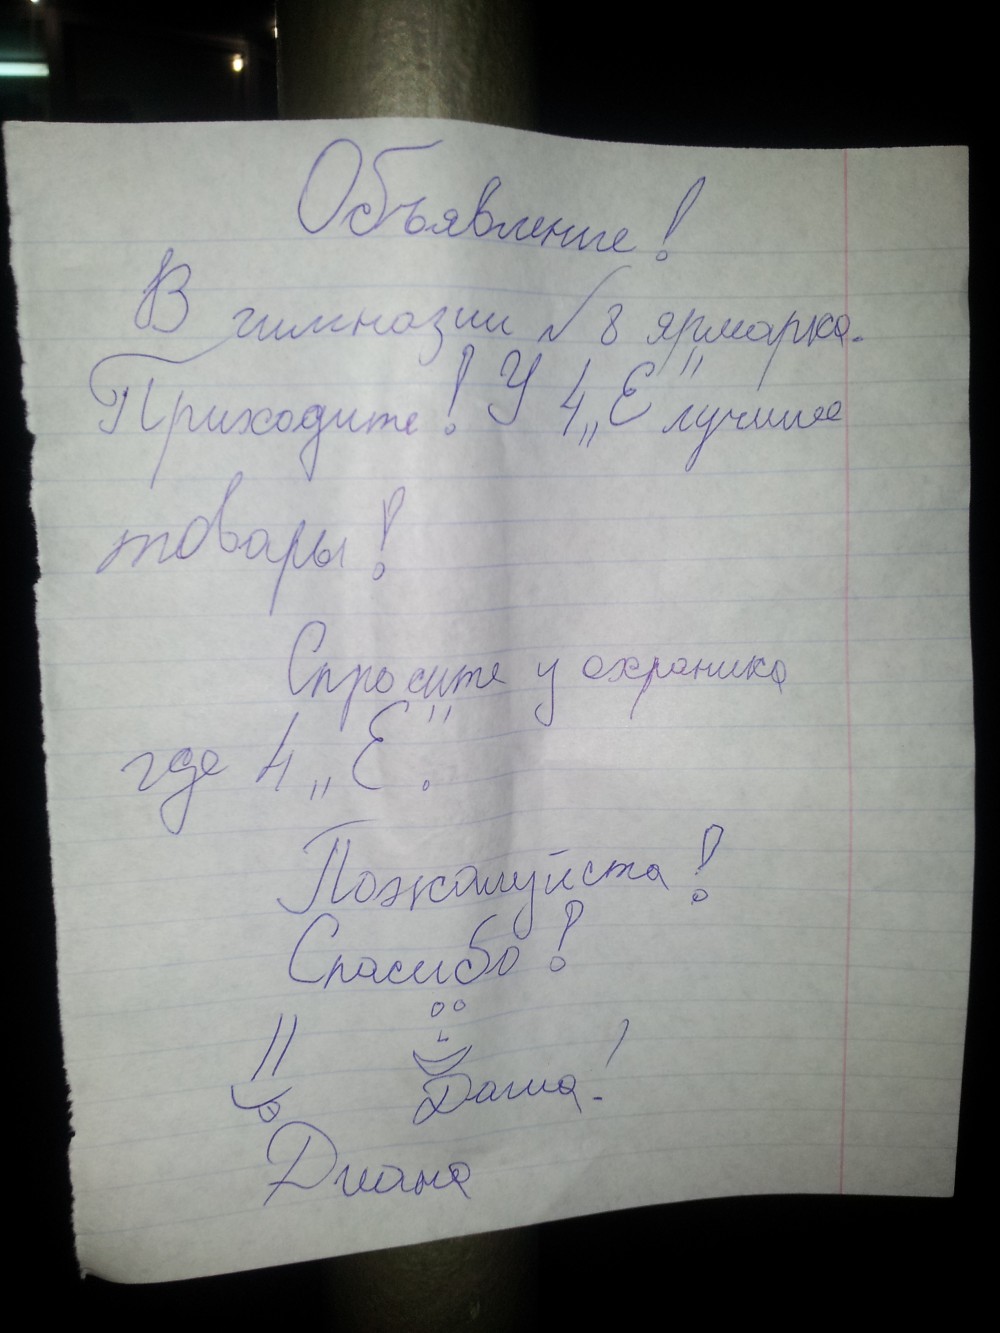 Объявление!
В гимназии №8 ярмарка.
Приходите! У 4 „Е" лучшие
товары!
Спросите у охраника
где 4 „Е".
Пожалуйста!
Спасибо!
Даша!
Диана